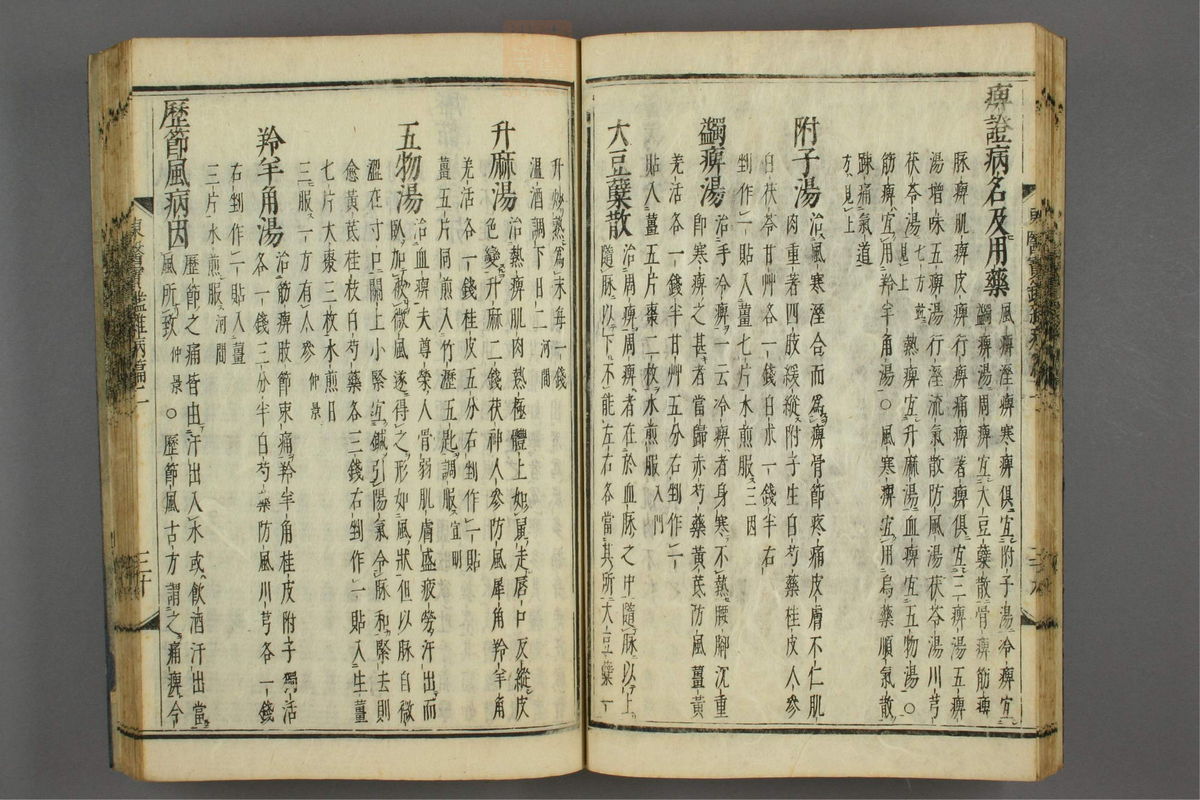 痺證病名及用藥 風痺溼痺寒痺俱宜附子湯冷痺宜
蠲痺湯周痺宜大豆蘗散骨痺筋痺
脉痺肌痺皮痺行痺痛痺著痺俱宜三痺湯五痺
湯增味五痺湯行溼流氣散防風湯茯苓湯川芎
茯苓湯七方並見上熱痺宜升麻湯血痺宜五物湯○
筋痺宜用羚羊角湯○風寒痺宜用烏藥順氣散
踈痛氣道
方見上
附子湯 治風寒溼合而爲痺骨節疼痛皮膚不仁肌
肉重著四肢緩縱附子生白芍藥桂皮人參
白茯苓甘艸各一錢白朮一錢半右
剉作一貼入薑七片水煎服三因
蠲痺湯 治手冷痺一云冷痺者身寒不熱腰腳沉重
卽寒痺之甚者當歸赤芍藥黃芪防風薑黃
羌活各一錢半甘艸五分右剉作一
貼入薑五片棗二枚水煎服入門
大豆蘗散 治周痺周痺者在於血脉之中隨脉以上
隨脉以下不能左右各當其所大豆蘗一
升炒熟爲末每一錢
溫酒調下日二河間
升麻湯 治熱痺肌肉熱極體上如鼠走唇口反縱皮
色變升麻二錢茯神人參防風犀角羚羊角
羌活各一錢桂皮五分右剉作一貼
薑五片同煎入竹瀝五匙調服宜明
五物湯 治血痺夫尊榮人骨弱肌膚盛疲勞汗出而
臥加被微風遂得之形如風狀但以脉自微
澀在寸口關上小緊宜鍼引陽氣令脉和緊去則
愈黃芪桂枝白芍藥各三錢右剉作一貼入生薑
七片大棗三枚水煎日
三服一方有人參仲景
羚羊角湯 治筋痺肢節束痛羚羊角桂皮附子獨活
各一錢三分半白芍藥防風川芎各一錢
右剉作一貼入薑
三片水煎服河間
歷節風病因 歷節之痛皆由汗出入水或飮酒汗出當
風所致仲景○歷節風古方謂之痛痺今
東醫寶鑑雜病篇二
三十